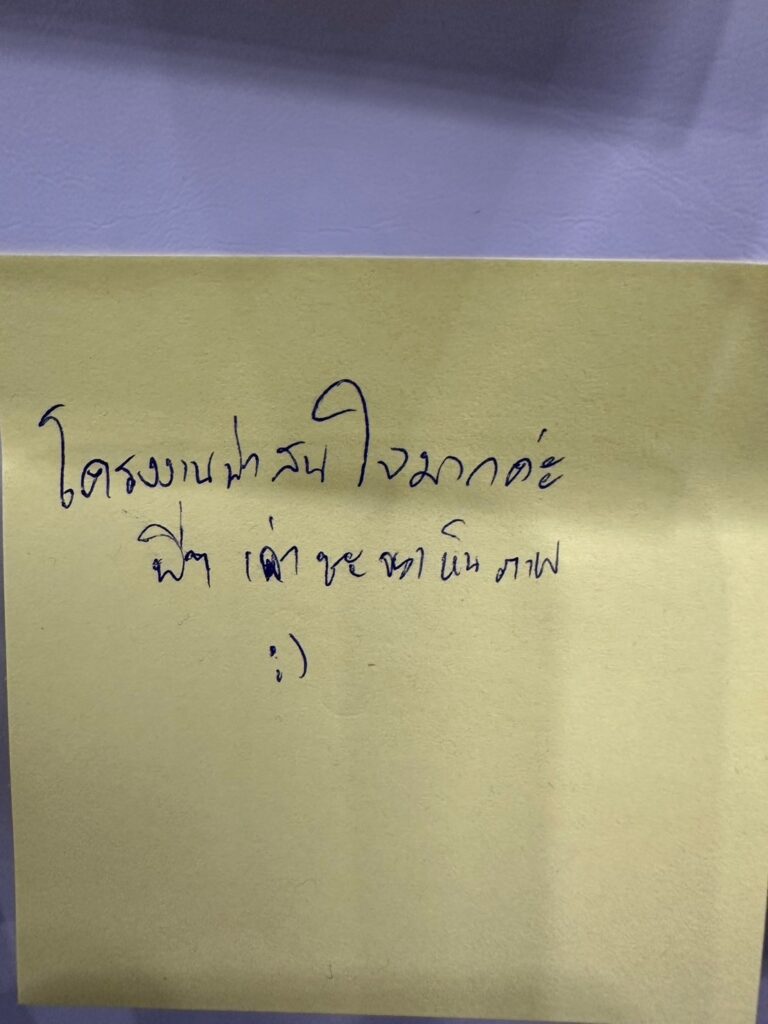 โครงงานน่าสนใจมากค่ะ
พี่ๆ เล่าซะจนเห็นภาพ
:)